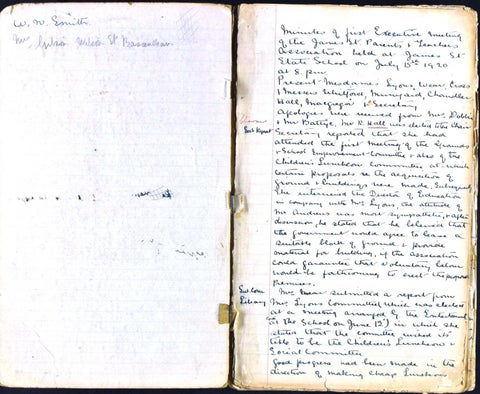 W. W. Smith
Mrs Gibson Wilson St Bassendean
Minutes of first Executive Meeting
of the James St Parents & Teachers
Association held at James St
State School on July 15th 1920
at 8. p.m
Present Mesdames Lyons, Wear, Cross
& Messrs Whitford, Mungard, Chandler
Hall, Macgregor & Secretary
Apologies were received from Mrs. Dobbie
& Mr Battye. Mr R. Hall was elected to the Chair
Sec's Report
Secretary reported that she had
attended the first Meeting of the Grounds
& School Improvement Committee & also of the
Children's Luncheon Committee at which
certain proposals re the acquisition of
ground & buildings were made. Subsequently
she interviewed the Director of Education
in company with Mrs Lyons, the attitude of
Mr Andrews was most sympathetic, & after
discussion, he stated that he believed that
the government would agree to lease a
suitable block of ground & provide
material for building, if the association
could guarantee that voluntary labour
would be forthcoming to erect the
premises.
Mrs Wear submitted a report from
Mrs Lyons Committee (which was elected
at a meeting arranged by the
at the School on June 12th) in which she
stated that the committee wished its
title to be the Children's Luncheon &
Social Committee
Good progress had been made in the
direction of making cheap Luncheons